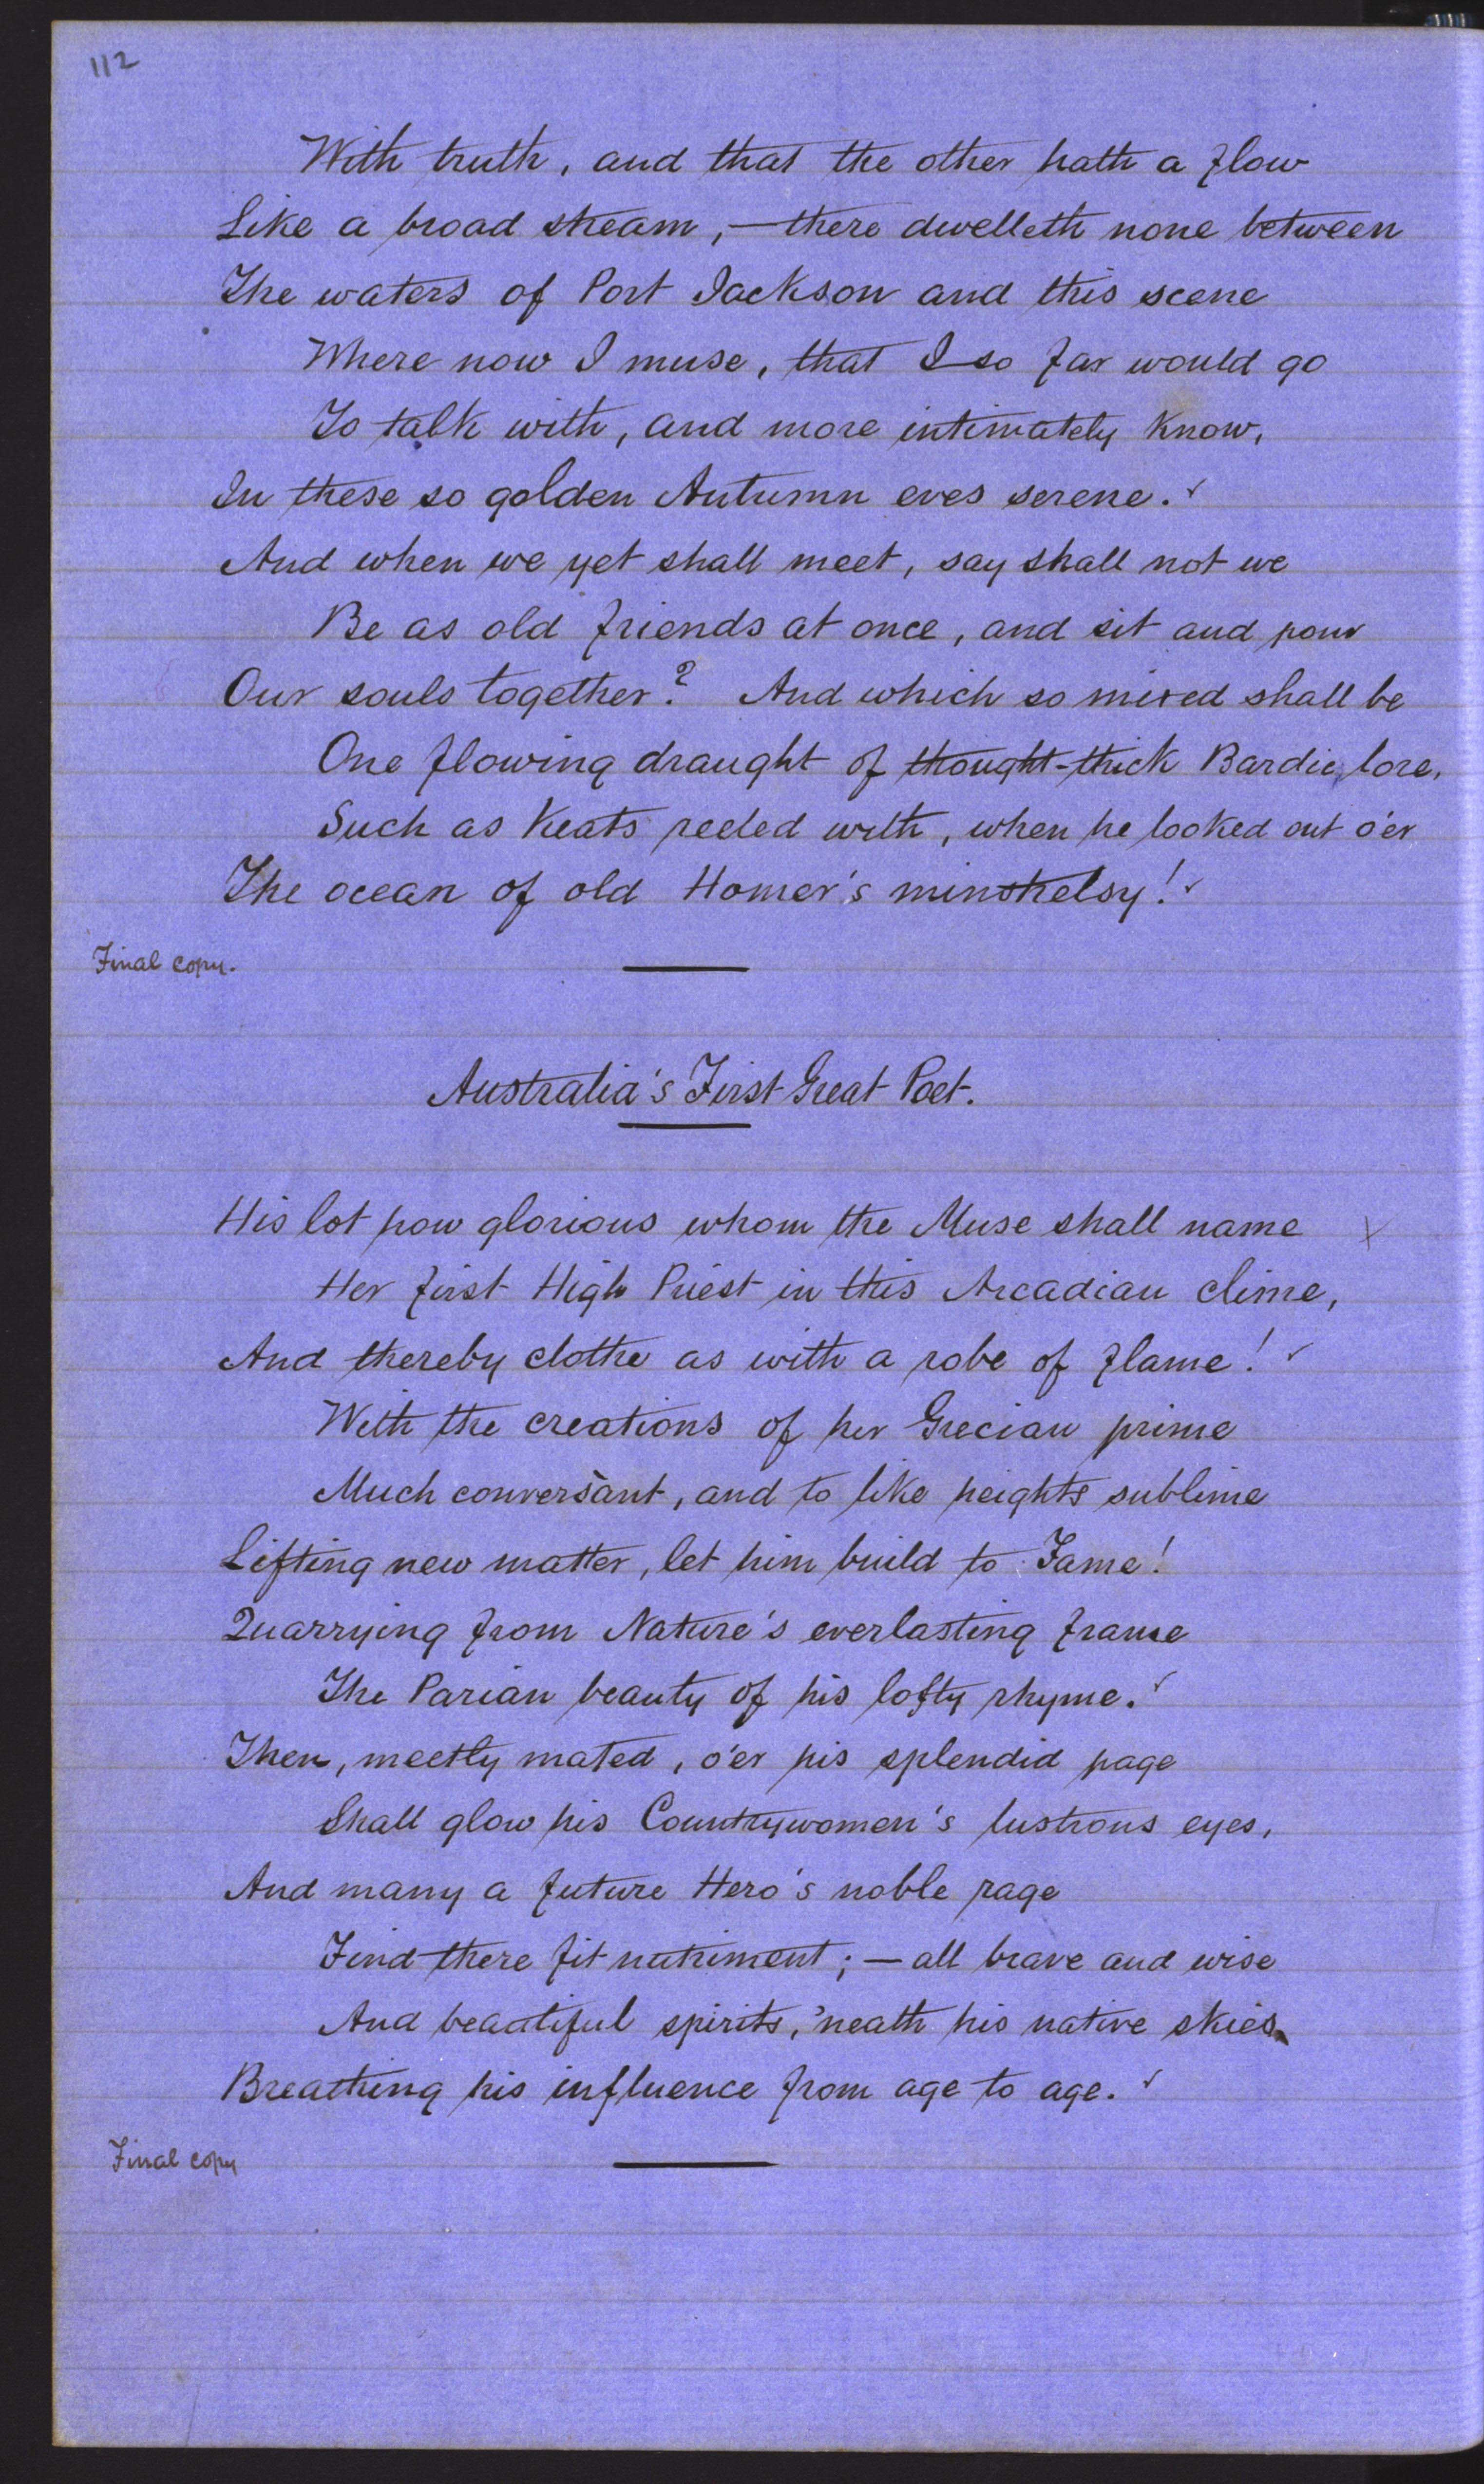 112
With truth, and that the other hath a flow
Like a broad stream,—there dwelleth none between
The waters of Port Jackson and this scene
Where now I muse, that I so far would go
To talk with, and more intimately know,
In these so golden Autumn eves serene.
And when we yet shall meet, say shall not we
Be as old friends at once, and sit and pour
Our souls together? And which so mixed shall be
One flowing draught of thought-thick Bardic lore,
Such as Keats reeled with, when he looked out o'er
The ocean of old Homer's minstrelsy!
Final copy.
Australia's First Great Poet.
His lot how glorious whom the Muse shall name
Her first High Priest in this Arcadian clime,
And thereby clothe as with a robe of flame!
With the creations of her Grecian prime
Much conversant, and to like heights sublime
Lifting new matter, let him build to Fame!
Quarrying from Nature's everlasting frame
The Parian beauty of his lofty rhyme.
Then, meetly mated, o'er his splendid page
Shall glow his Countrywomen's lustrous eyes,
And many a future Hero's noble rage
Find there fit nutriment;—all brave and wise
And beautiful spirits, 'neath his native skies
Breathing his influence from age to age.
Final copy